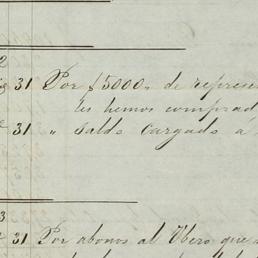 2
31 Por $5000„ de represe
les hemos comprad
31 „ Saldo cargado a
3
31 Por abonos al Ubero que